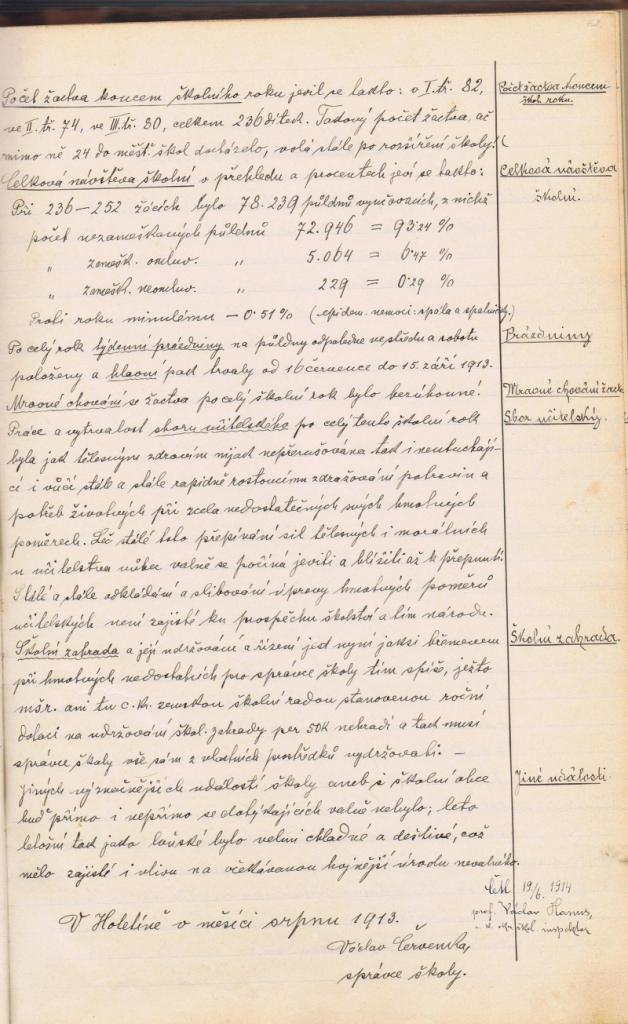 Počet žactva koncem školního roku jevil se takto: v I. tř. 82,
ve II. tř. 74, ve III. tř. 80, celkem 236 dítek. Takový počet žactva, ač
mimo ně 24 do měšť. škol docházelo, volá stále po rozšíření školy!
Celková návštěva školní v přehledu a procentech jeví se takto:
Při 236–252 žácích bylo 78.239 půldnů vyučovacích, z nichž
počet nezameškaných půldnů 72.946 = 93·24 %
„ zamešk. omluv. „ 5.064 = 6·47 %
„ zamešk. neomluv. „ 229 = 0·29 %
Proti roku minulému – 0·51 % (epidem. nemoci: spála a spalničky.)
Po celý rok týdenní prázdniny na půldny odpoledne ve středu a sobotu
položeny a hlavní pak trvaly od 16 července do 15. září 1913.
Mravné chování se žactva po celý školní rok bylo bezúhonné.
Práce a vytrvalost sboru učitelského po celý tento školní rok
byla jak tělesným zdravím nijak nepřerušována tak i neutuchají-
cí i vůči stále a stále rapidně rostoucímu zdražování potravin a
potřeb životných při zcela nedostatečných svých hmotných
poměrech. Leč stálé toto přepínání sil tělesných i morálních
u učitelstva vůbec valně se počíná jeviti a blížiti až k přepnutí.
Stálé a stále odkládání a slibování úpravy hmotných poměrů
učitelských není zajisté ku prospěchu školství a tím národu.
Školní zahrada a její udržování a řízení jest nyní jaksi břemenem
při hmotných nedostatcích pro správce školy tím spíše, ježto
msr. ani tu c. k. zemskou školní radou stanovenou roční
dotaci na udržování škol. zahrady per 50K nehradí a tak musí
správce školy vše sám z vlastních prostředků vydržovati. –
Jiných význačnějších událostí školy aneb i školní obce
buď přímo i nepřímo se dotýkajících valně nebylo; léto
letošní tak jako loňské bylo velmi chladné a deštivé, což
mělo zajisté i vlivu na očekávanou hojnější úrodu nevalného.
V Holetíně v měsíci srpnu 1913.
Václav Červenka,
správce školy.
Počet žactva koncem
škol. roku.
Celková návštěva
školní.
Prázdniny
Mravné chování žactva
Sbor učitelský.
Školní zahrada.
Jiné události.
četl 19/6. 1914
prof. Václav Hanus,
škol. inspektor